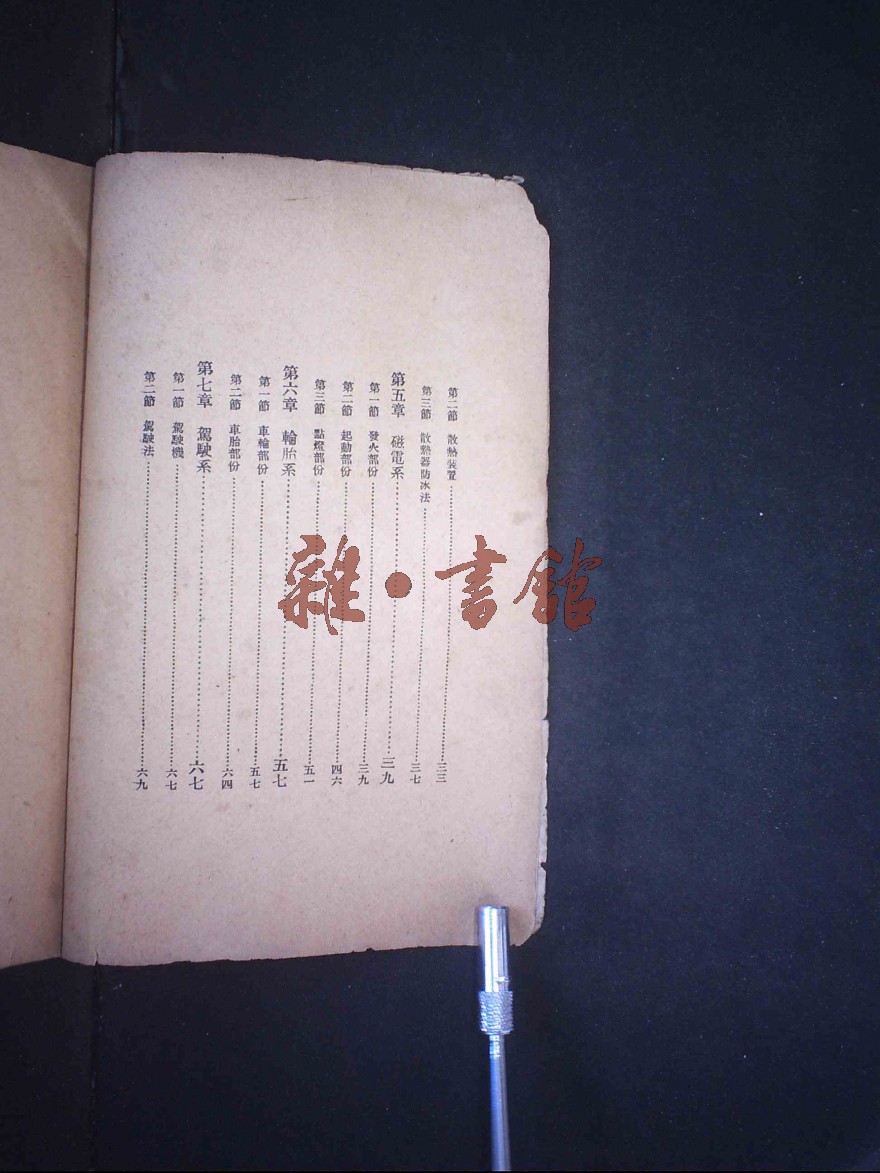 第二節　散熱裝置……三三
第三節　散熱器防冰法……三七
第五章　磁電系……三九
第一節　發火部份……三九
第二節　起動部份……四六
第三節　點燈部份……五一
第六章　輪胎系……五七
第一節　車輪部份……五七
第二節　車胎部份……六四
第七章　駕駛系……六七
第一節　駕駛機……六七
第二節　駕駛法……六九
雜·書館